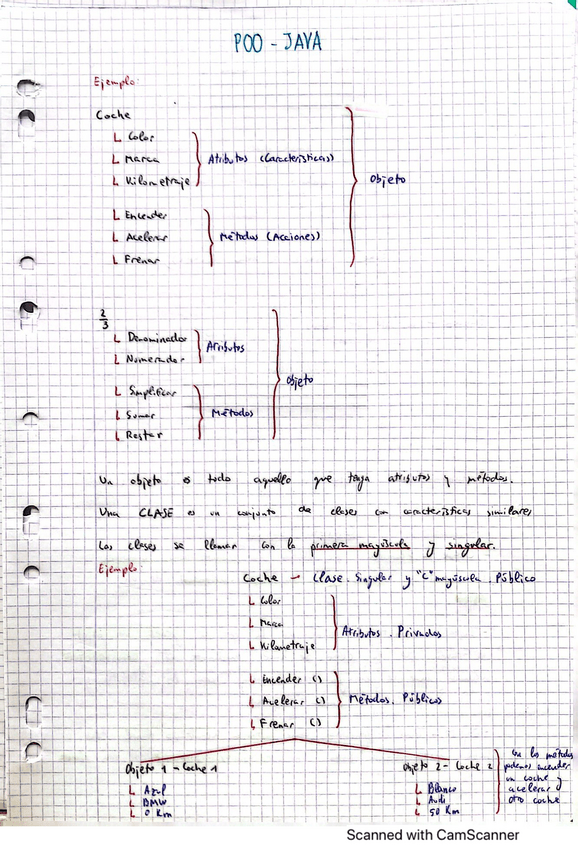 POO - JAVA
Ejemplo:
Coche
Color
Marca
Kilometraje
Atributos (Características)
Encender
Acelerar
Frenar
Métodos (Acciones)
Objeto
2/3
Denominador
Numerador
Atributos
Simplificar
Sumar
Restar
Métodos
Objeto
Un objeto es todo aquello que tenga atributos y métodos.
Una CLASE es un conjunto de clases con características similares
Las clases se llaman con la primera mayúscula y singular.
Ejemplo:
Coche → Clase. Singular y "C" mayúscula. Público
Color
Marca
Kilometraje
Atributos. Privados
Encender ()
Acelerar ()
Frenar ()
Métodos. Públicos
Objeto 1 - Coche 1
Azul
BMW
0 Km
Objeto 2 - Coche 2
Blanco
Audi
50 Km
Con los métodos
podemos encender
un coche y
acelerar
otro coche
Scanned with CamScanner